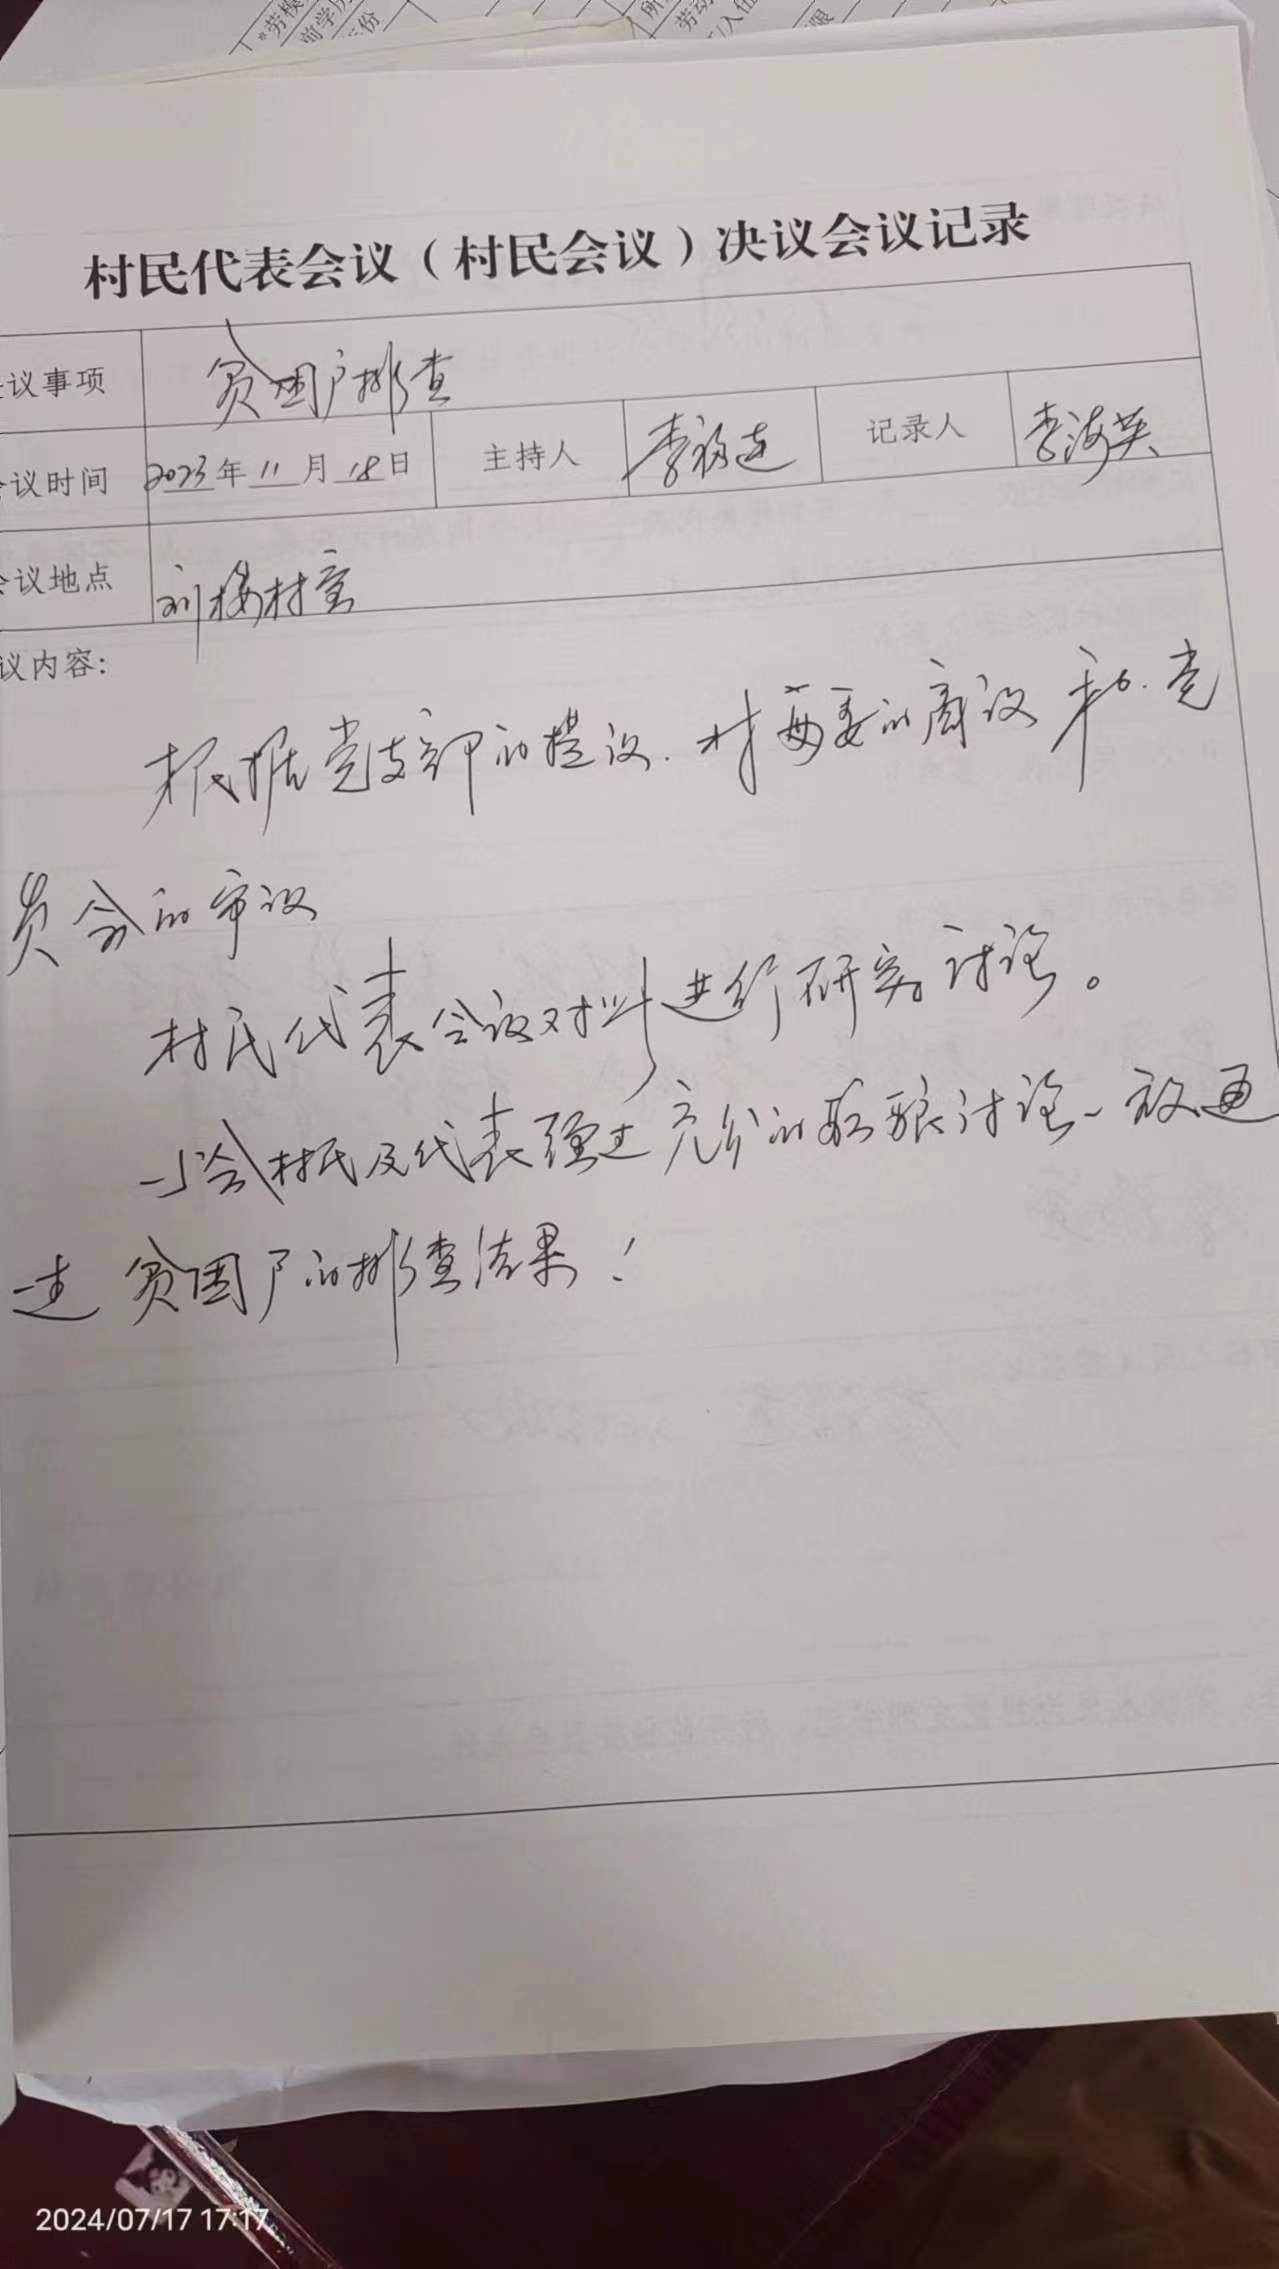 村民代表会议（村民会议）决议会议记录
议事项 贫困户排查
议时间 2023年11月18日 主持人 李福连 记录人 李海英
会议地点 刘楼村室
议内容：
根据党支部的提议.村两委的商议和.党
员会的审议
村民代表会议对此进行研究讨论。
与会村民及代表经过充分的酝酿讨论一致通
过 贫困户的排查结果！
2024/07/17 17:17